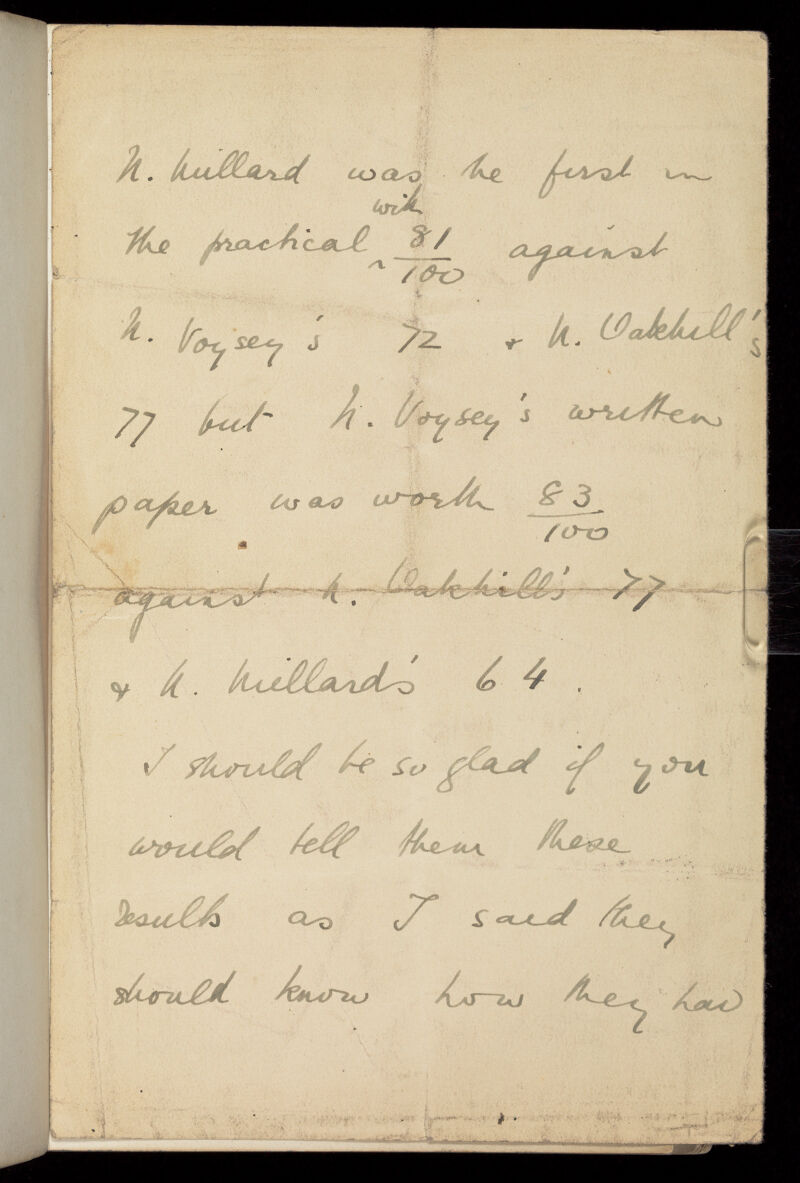 N. Millard was he first in
with
the practical ^ 81/100 against
N. Voysey's 72 & N. Oakhill's
77 but N. Voysey's written
paper was worth 83/100
against N. Oakhill's 77
& N. Millard's 64.
I should be so glad if you
would tell them these
results as I said they
should know how they had